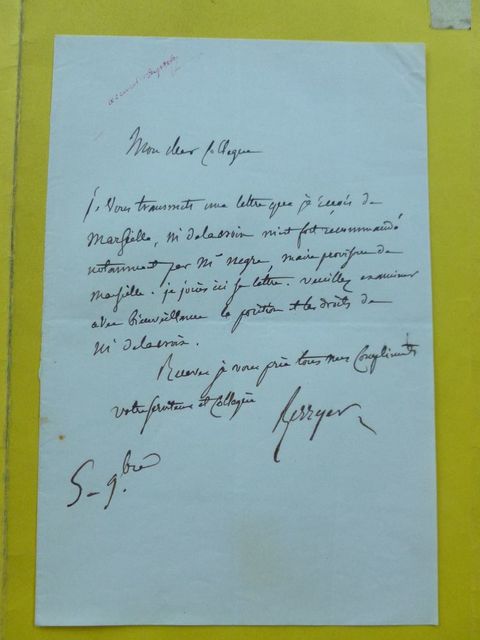 Mon cher Collègue
je vous transmets une lettre que je reçois de
Marseille, Mr delacroix m'est fort recommandé
notamment par Mr negre, maire provisoire de
Marseille. je joins ici sa lettre. veuillez examiner
avec bienveillance la position et les droits de
Mr delacroix.
Recevez je vous prie tous mes Compliments
votre serviteur et Collègue Berryer
5 - 9.bre